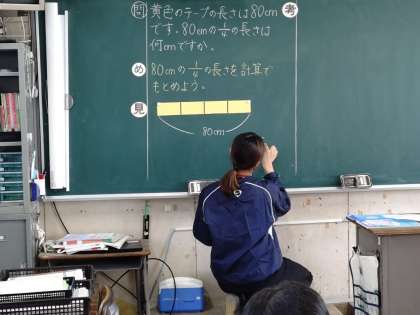 問 黄色のテープの長さは80cm
です。80cmの1/4の長さは
何cmですか。
め 80cmの1/4の長さを計算で
もとめよう。
見
80cm
考